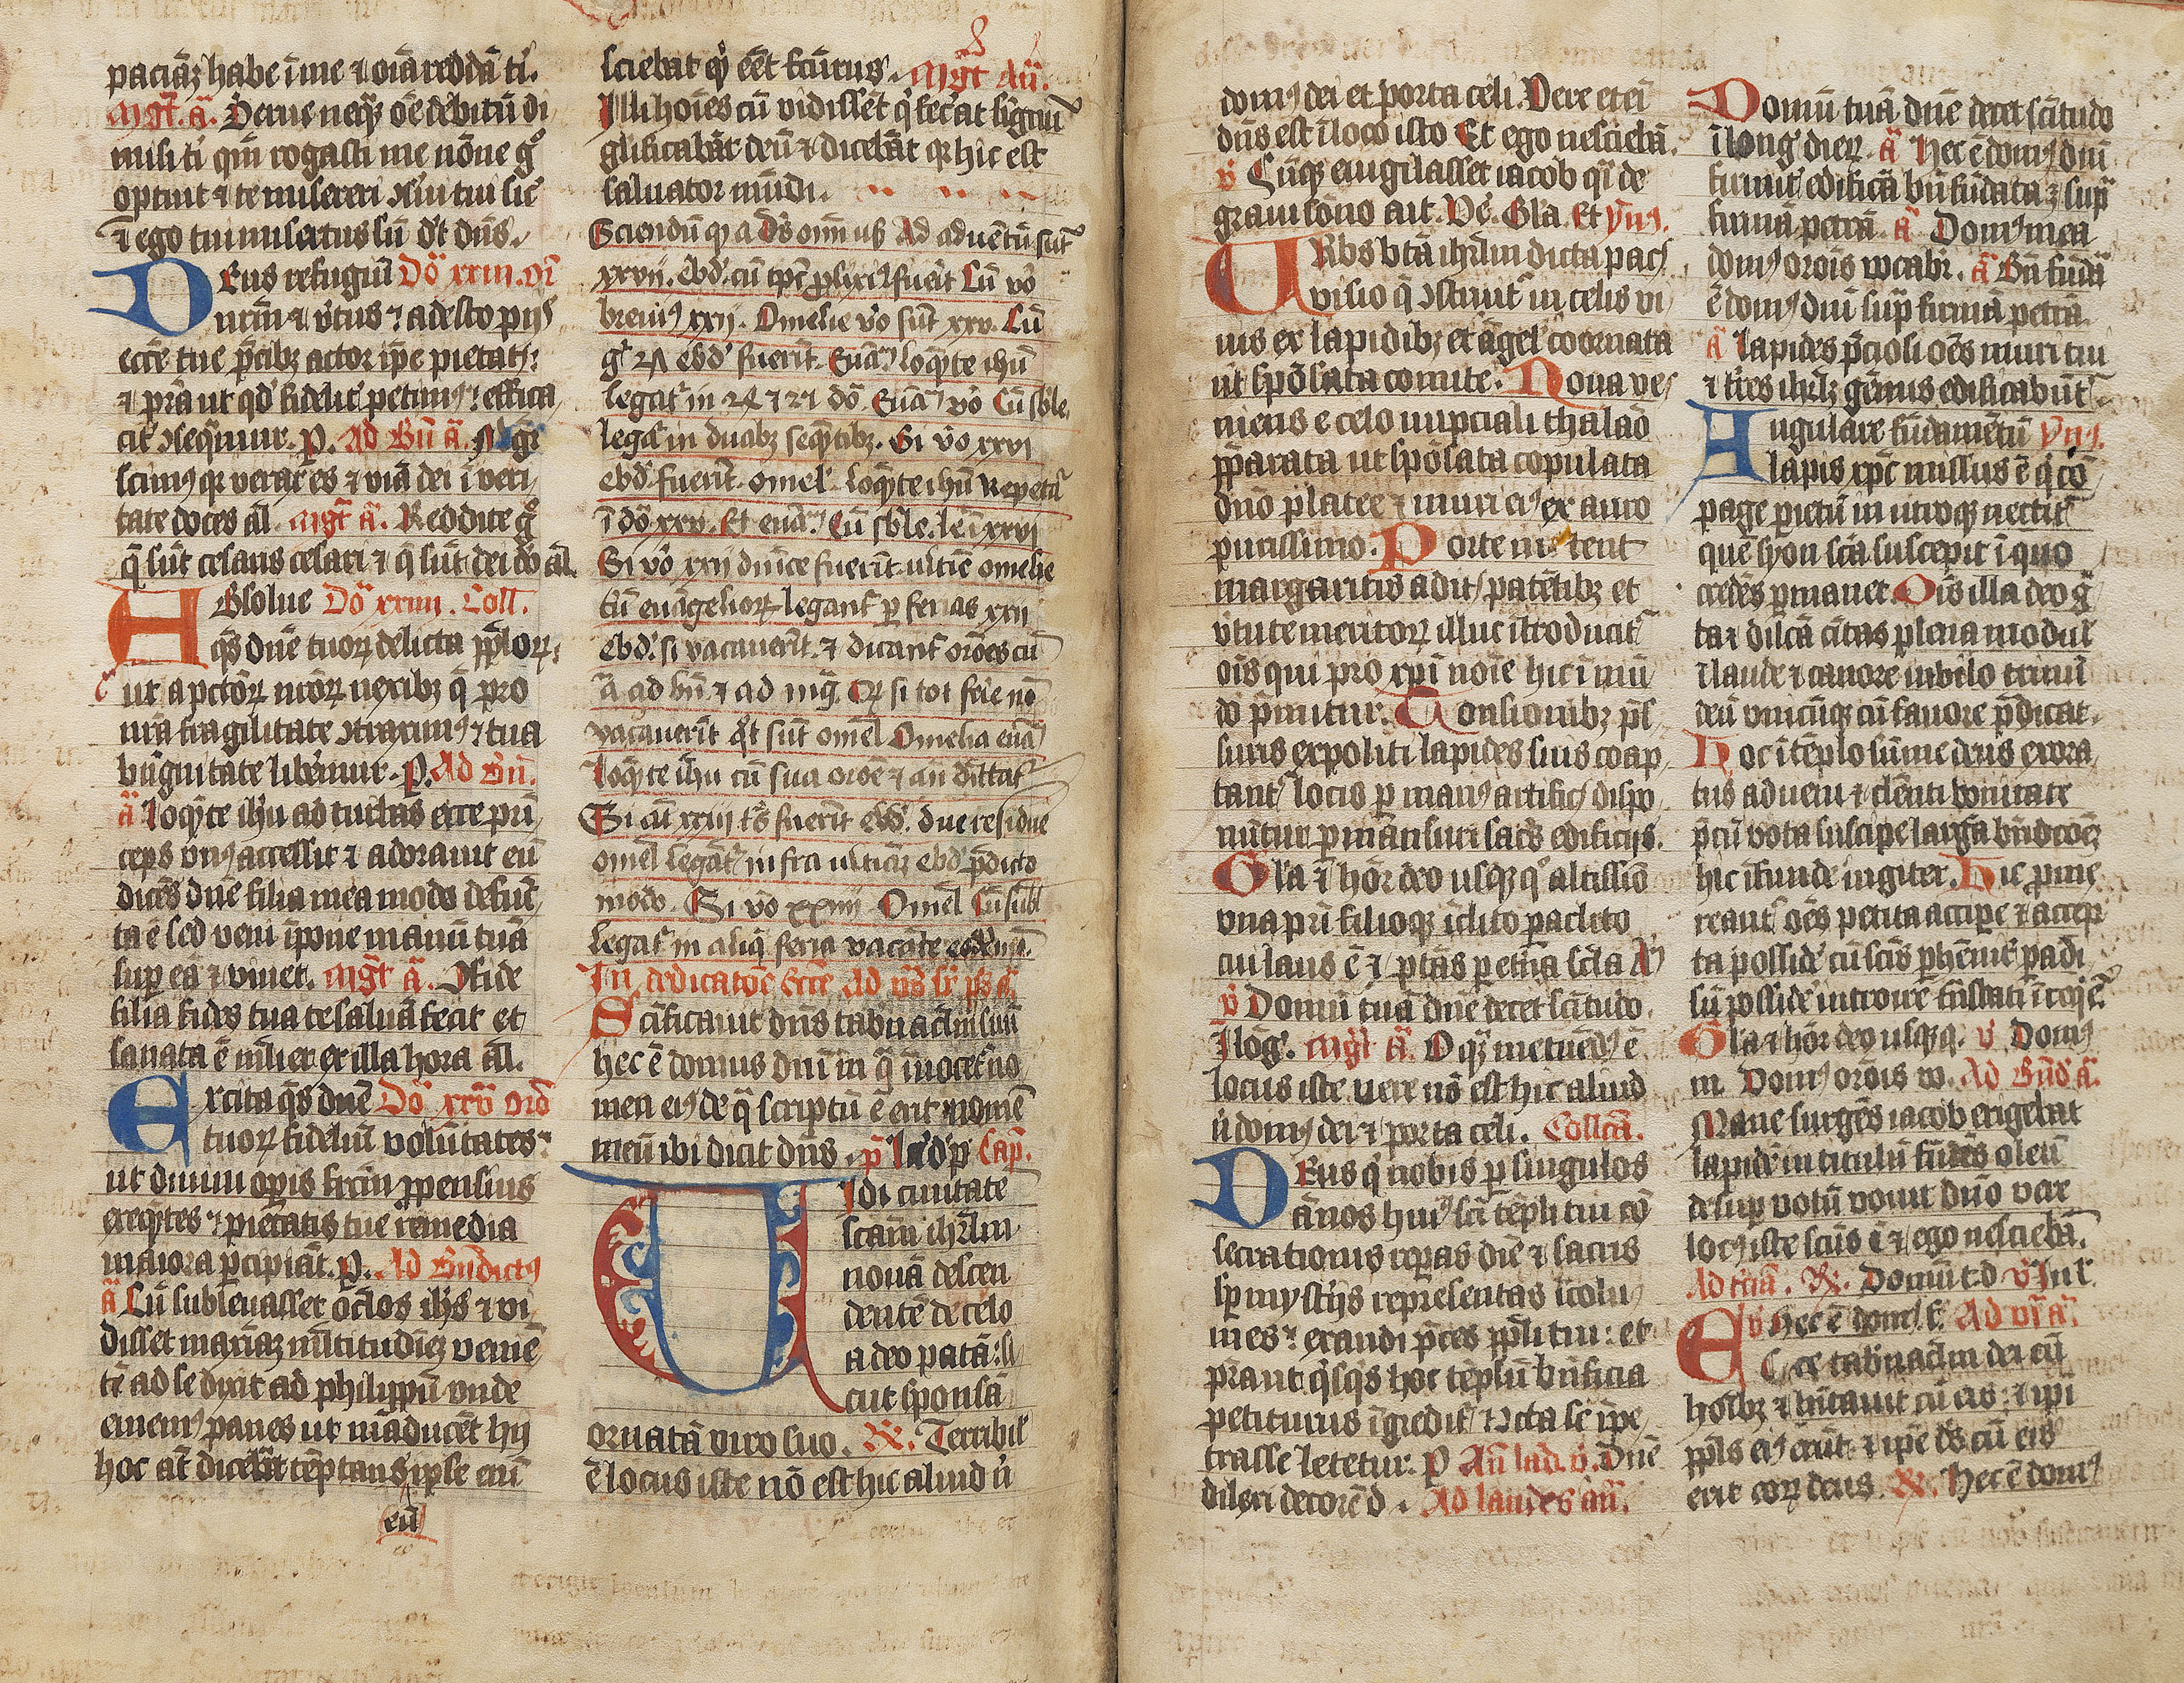 paciāʒ habe ī me ⁊ oīa reddā t̄.
Mgf̄. ā. Serue neqȝ oē debitū di
misi t̄ qm̄ rogasti me nōne gͦ
optuit ⁊ te misereri ɔsui tui sic
⁊ ego tui misertus sū dt dn̄s.
Deus refugiū Dō xxiii. or̄
nr̄m ⁊ v̄tus ⁊ adesto pijs
eccē tue p̄cibȝ actor ip̄e pietatꝭ:
⁊ pr̄a ut qd̄ fidelit̄ petimꝰ: effica
cit̄ ɔseqm̄ur. p. Ad Bn̄ ā. Mgr̄
scimꝰ qꝛ verax es ⁊ viā dei ī veri
tate doces al̄. Mgf̄ ā. Reddite gͦ
q̄ sūt cesaris cesari ⁊ q̄ sūt dei dō al̄.
Absolue Dō xxiiii. Coll.
qs̄ dn̄e tuoꝝ delicta pp̄loꝝ:
ut a pctōꝝ nr̄oꝝ nexibȝ q̄ pro
nr̄a fragilitate ɔtraximꝰ ⁊ tua
bn̄gnitate liberemur. p. Ad Bn̄.
ā Loqn̄te ih̄u ad turbas ecce prī
ceps vnꝰ accessit ⁊ adorauit eū
dicēs dn̄e filia mea modo defūc
ta ē sed veni īpone manū tuā
sup eā ⁊ viuet. Mgf̄ ā. ɔfide
filia fides tua te saluā fecit et
sanata ē ml̄ier ex illa hora al̄.
Excita qs̄ dn̄e Dō xxv ord̄
tuoꝝ fideliū volūtates:
ut diuini opis fructū ppensius
exeqn̄tes: pietatis tue remedia
maiora percipiāt. p. Ad Bn̄dictꝰ
ā Cū subleuasset oclos ih̄s ⁊ vi
disset maximā ml̄titudinē venie
tē ad se dixit ad philippū vnde
ememꝰ panes ut māducēt hij
hoc āt dicebat tēptans ipse enī
eū
sciebat qd̄ eēt fcūrus. Mgf̄ Añ.
Illi hoīes cū vidissēt qd̄ fecat signū
glificabāt deū ⁊ dicebāt qꝛ hic est
saluator mūdi.
Sciendū qd̄ a Dō omniū sc̄ Ad aduētū sūt
xxvii. ebd̄. cū tp̄c plixiꝰ fuerit Cū vō
breuiꝰ xxii. Omelie vō sūt xxv. Cū
gͦ 27 ebd̄ fuerīt. Euāᷓ loqn̄te ih̄u
legatͬ in 24 ⁊ 27 dō. Euāᷓ vō Cū sble.
legatͬ in duabȝ seqn̄tibȝ. Si vō xxvi
ebd̄ fuerīt. omel. loqn̄te ih̄u Repetitͬ
ī dō xxv. Et euāᷓ Cū sble. le ī xxvi
Si vō xxii dn̄ice fuerīt. ultīe omelie
cū euāgelioꝝ legantͬ p ferias xxii
ebd̄. si vacauerīt. ⁊ dicantͬ orōes cū
ā ad bn̄ ⁊ ad mḡ. Qꝛ si tot ferie nō
vacauerīt qt̄ sūt omel̄ Omelia euāᷓ
loqn̄te ih̄u cū sua orōe ⁊ an̄ dictatͬ
Si āt xxiii t̄s fuerīt ebd̄. due residue
omel̄ legātͬ infra ultimā ebd̄ p̄dicto
modo. Si vō xxiiii Omel̄ Cū subl
legatͬ in aliq̄ feria vacāte eodē mō.
In dedicatōe eccē Ad vs̄ sr̄ ps̄ ā.
Scīficauit dn̄s tabn̄aclm̄ suū
hec ē domus dn̄i in q̄ inuocetͬ no
men eiꝰ de q̄ scriptū ē erit nomē
meū ibi dicit dn̄s. p̄ La'd'p' Cap̄.
Vidi ciuitatē
scām ih̄rlm̄
nouā descen
dentē de celo
a deo patā: si
cut sponsā
ornatā viro suo. ℟. Terribil'
ē locus iste nō est hic aliud n̄
domꝰ dei et porta celi. Vere eteī
dn̄s est ī loco isto Et ego nesciebā.
v̄ Cūqȝ euigilasset iacob qͣi de
graui sōno ait. Ve. Gl'a. Et ymꝰ.
Urbs btā ih̄rlm̄ dicta pacꝭ
visio q̄ ɔstruitͬ in celis vi
uis ex lapidibȝ et āgel' coornata
ut spōsata comite. Noua ve
niens e celo nupciali thalaō
pparata ut spōsata copulata
dn̄o platee ⁊ muri eiꝰ ex auro
purissimo. Porte nitent
margaritis aditꝰ patētibȝ et
v̄tute meritoꝝ illuc ītroducitͬ
ois qui pro xp̄i noīe hic ī mū
do p̄mitur. Tonsionibȝ p̄s
suris expoliti lapides suis coap
tantͬ locis p manꝰ artificꝭ dispo
nūtur pmāsuri sacͥs edificijs.
Gl'a ⁊ hōr deo usqȝ qͦ altissiō
vna prī filioqȝ īclito paclito
cui laus ē ⁊ p̄tās p etn̄a scl̄a A
v̄ Domū tuā dn̄e decet scītudo.
I lōg'. Mgf̄ ā. O qͣ metuēdꝰ ē
locus iste vere nō est hic aliud
n̄ domꝰ dei ⁊ porta celi. Collcā.
Deus q̄ nobis p singulos
ānos huiꝰ scī tēpli tui cō
secrationis repas diē ⁊ sacris
sp mysterijs repsentas īcolu
mes: exaudi p̄ces pp̄li tui: et
pr̄a ut qͥsqͥs hoc tēplū bn̄ficia
petiturus īgreditͬ / cūcta se īpe
trasse letetur. p Añ lad. v̄. Dn̄e
dilexi decorē d. Ad laudes añ.
Domū tuā dn̄e decet scītudo
ī long' dieꝝ. ā Hec ē domꝰ dn̄i
firmit̄ edificā bn̄ fūdata ⁊ sup
firmā petrā. ā Domꝰ mea
domꝰ orōis vocabr̄. ā Bn̄ fūdā
ē domꝰ dn̄i sup firmā petrā.
ā Lapides p̄ciosi oēs muri tui
⁊ tr̄res ih̄rlȝ gēmis edificabūtͬ.
Angulare fūdamētū Ymꝰ.
lapis xp̄c missus ē qͥ cō
page pietū in utroqȝ nectitͬ
quē syon scā suscepit ī quo
credēs pmanet. Ois illa deo gͣ
ta ⁊ dilcā cītas plena modul'
ī laude ⁊ canore iubilo trinū
deū vnicūqȝ cū fauore p̄dicat.
Hoc ī tēplo sūme deus exora
tus adueni ⁊ clēnti bonitate
p̄cū vota suscipe larga bn̄dcōeȝ
hic īfunde iugiter. Hic pme
reantͬ oēs petita accipe ⁊ accep
ta posside cū scīs phēnit̄ padi
sū posside introire trāslati ī reqͥē.
Gl'a ⁊ hōr deo usqȝ q. v̄ Domꝰ
m Domꝰ orōis vo. Ad Bn̄d ā.
Mane surgēs iacob erigebat
lapidē in titulū fūdēs oleū
desup votū vouit dn̄o vere
locꝰ iste scūs ē ⁊ ego nesciebā.
Ad tciā. ℟. Domū t.d v̄ Inl'
v̄ Hec ē domꝰ f. Ad vi ā.
Ecce tabn̄aclm̄ dei cū
hoībȝ ⁊ hītauit cū eis: ⁊ ip̄i
pp̄ls eiꝰ erūt ⁊ ip̄e ds̄ cū eis
erit eoꝝ deus. ℟. Hec ē domꝰ